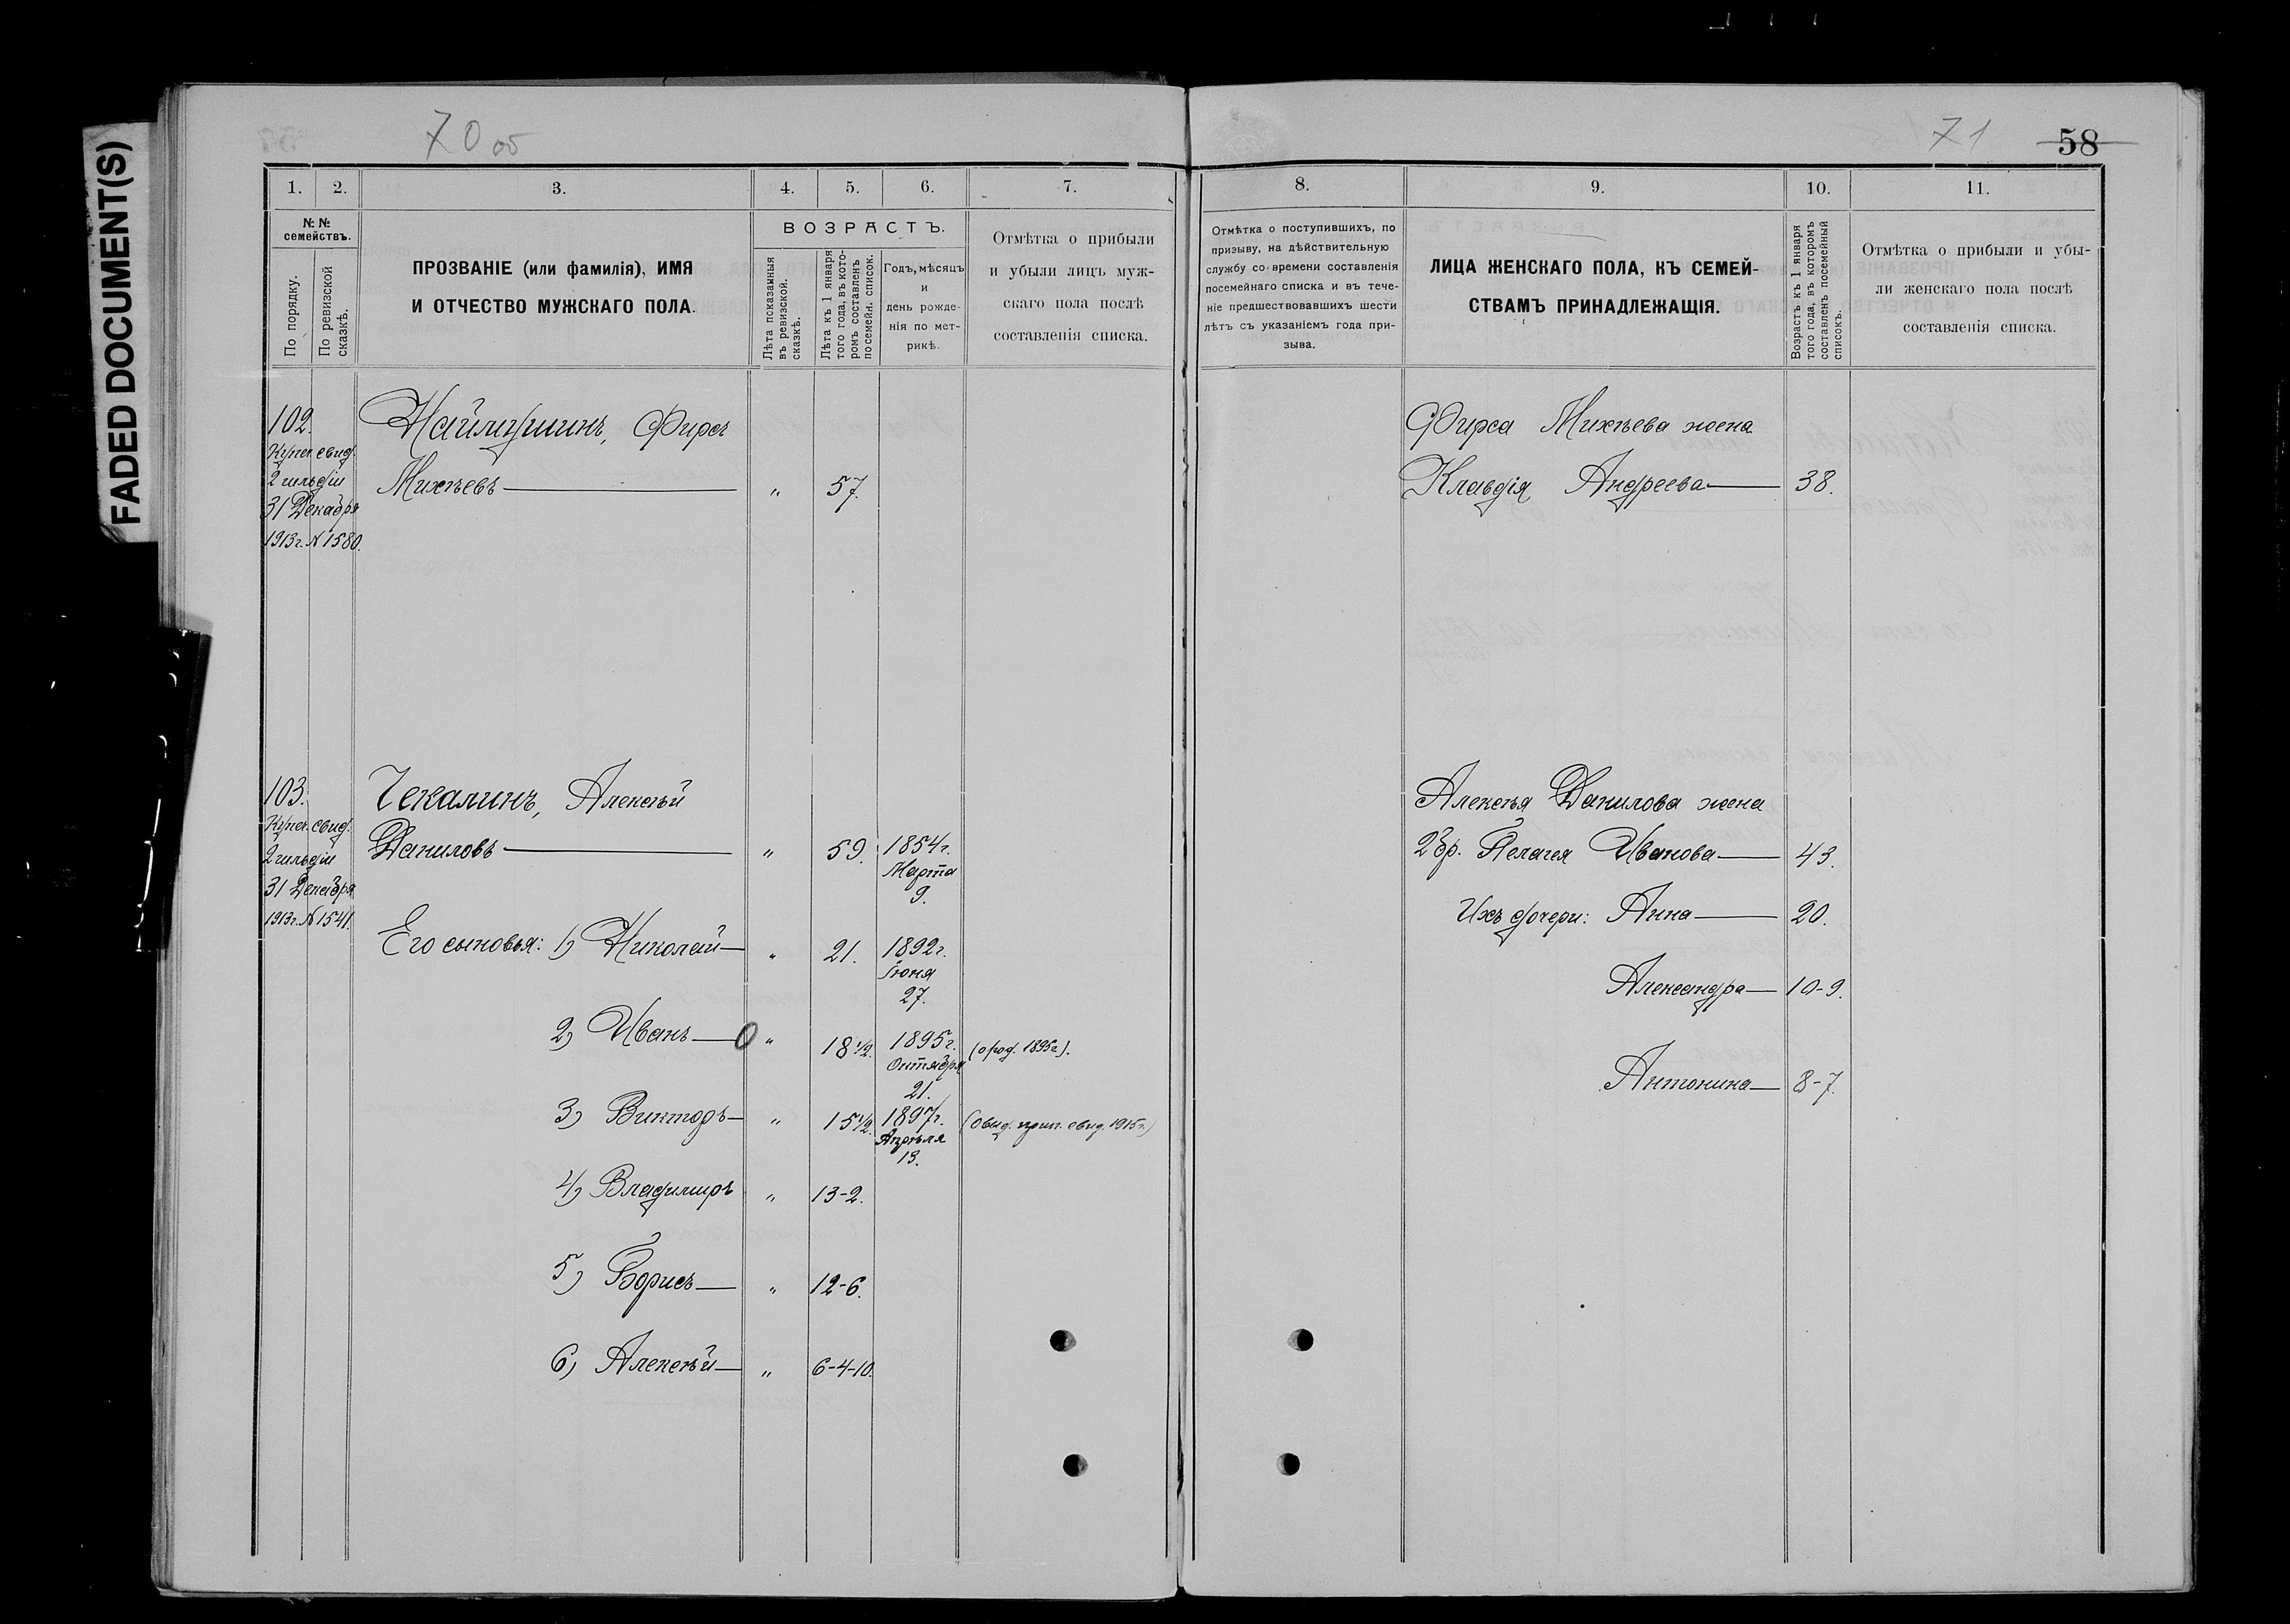 FADED DOCUMENT(S)
70 об
1. 2. 3. 4. 5. 6. 7.
№ №
семействъ.
По порядку.
По ревизской
сказкѣ.
ПРОЗВАНІЕ (или фамилія), ИМЯ
И ОТЧЕСТВО МУЖСКАГО ПОЛА.
ВОЗРАСТЪ.
Лѣта показанныя
въ ревизской.
сказкѣ.
Лѣта къ 1 января
того года, въ кото-
ромъ составленъ
посемейн. список.
Годъ, мѣсяцъ
и
день рожде-
нія по мет-
рикѣ.
Отмѣтка о прибыли
и убыли лицъ муж-
скаго пола послѣ
составленія списка.
102.
Купеч. свид.
2 гильдіи
31 Декабря
1913 г. № 1580.
Фирсъ
Михѣевъ — " 57.
103.
Купеч. свид.
2 гильдіи
31 Декабря
1913 г. № 1541.
Чекалинъ, Алексѣй
Даниловъ — " 59. 1854 г.
Марта
9.
Его сыновья: 1) Николай — " 21. 1892 г.
Іюня
27.
2) Иванъ — 0 " 18 1/2. 1895 г. (о род. 1895 г.).
Октября
21.
3) Викторъ — " 15 1/2. 1897 г. свид. 1915 г.)
Апрѣля
13.
4) Владиміръ " 13-2.
5) Борисъ — " 12-6.
6) Алексѣй — " 6-4-10.
71 58
8. 9. 10. 11.
Отмѣтка о поступившихъ, по
призыву, на дѣйствительную
службу со времени составленія
посемейнаго списка и въ тече-
ніе предшествовавшихъ шести
лѣтъ съ указаніемъ года при-
зыва.
ЛИЦА ЖЕНСКАГО ПОЛА, КЪ СЕМЕЙ-
СТВАМЪ ПРИНАДЛЕЖАЩІЯ.
Возрастъ къ 1 января
того года, въ которомъ
составленъ посемейный
списокъ.
Отмѣтка о прибыли и убы-
ли женскаго пола послѣ
составленія списка.
Фирса Михѣева жена
Клавдія Андреева — 38.
Алексѣя Данилова жена
2 бр. Пелагея Иванова — 43.
Ихъ дочери: Анна — 20.
Александра — 10-9.
Антонина — 8-7.